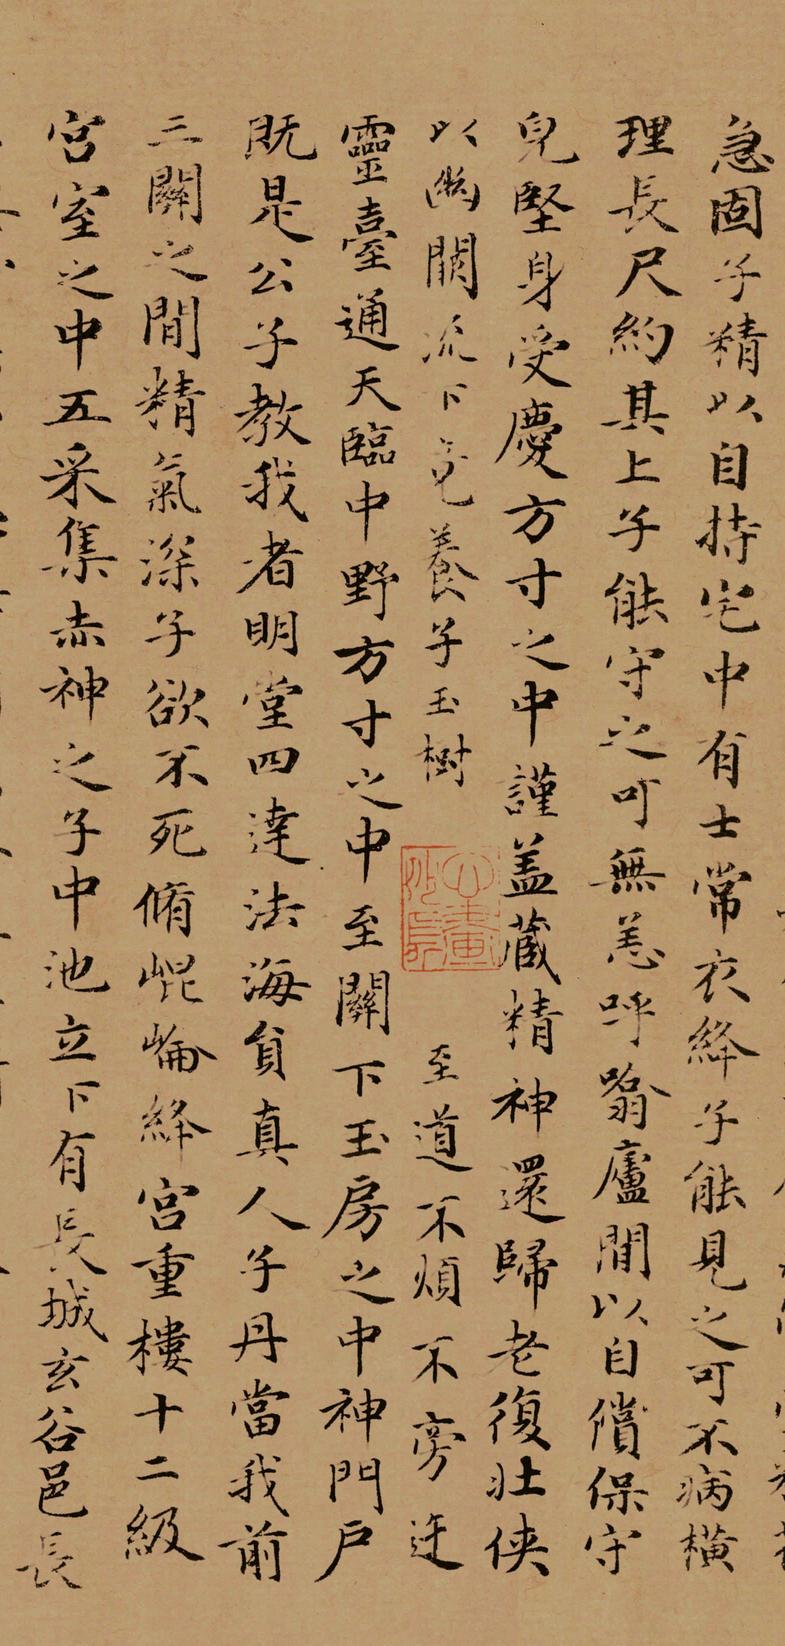 急固子精以自持宅中有士常衣絳子能見之可不病橫
理長尺約其上子能守之可無恙呼噏廬間以自償保守
兒堅身受慶方寸之中謹盖藏精神還歸老復壯俠
以幽闕流下竟養子玉樹 至道不煩不旁迕
靈臺通天臨中野方寸之中至關下玉房之中神門戶
既是公子教我者明堂四達法海員真人子丹當我前
三關之間精氣深子欲不死脩崐崘絳宮重樓十二級
宮室之中五采集赤神之子中池立下有長城玄谷邑長